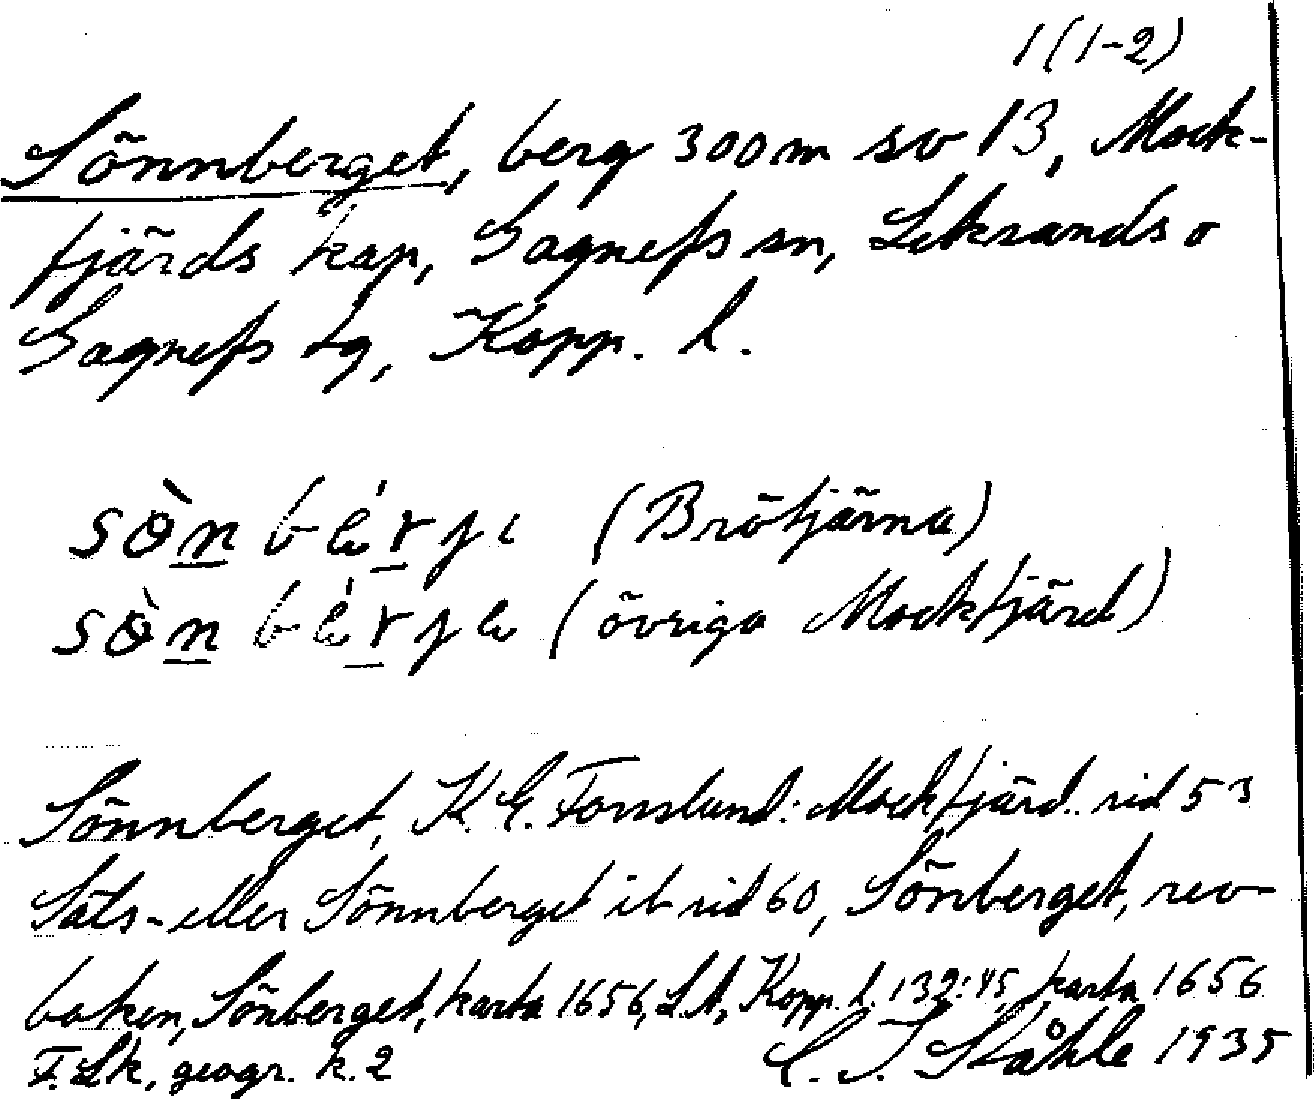 1(1-2)
Sönnberget, berg 300 m sv 13, Mock-
fjärds kap, Gagnefs sn, Leksands o
Gagnefs tg, Kopp. l.
(Brötjärna)
(övriga Mockfjärd)
Sönnberget, K. E. Forsslund: Mockfjärd. sid 53
Säts- eller Sönnberget ib sid 60, Sönberget, rev
boken, Sönberget, karta 1656, LA, Kopp. l. 132:45, karta 1656
F. Lk, geogr. k. 2
C. I. Ståhle 1935